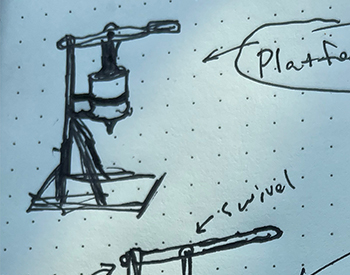 Platfo
swivel